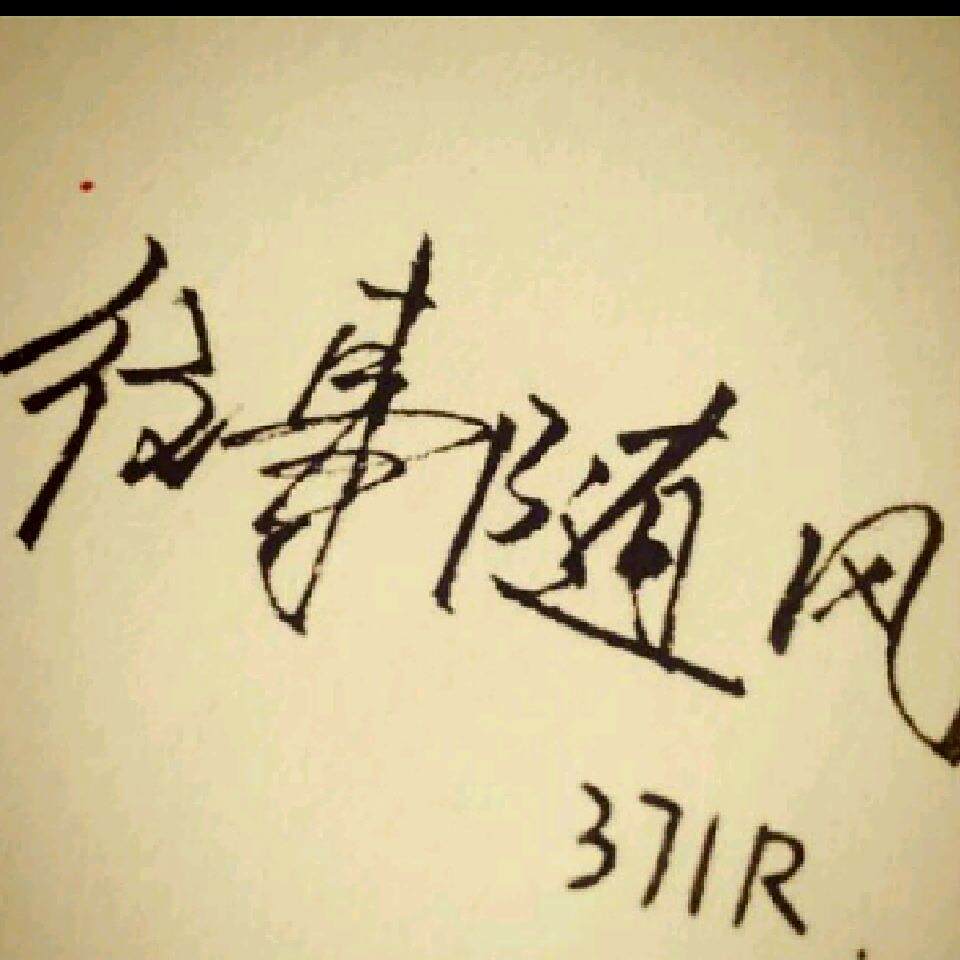 往事随风
371R